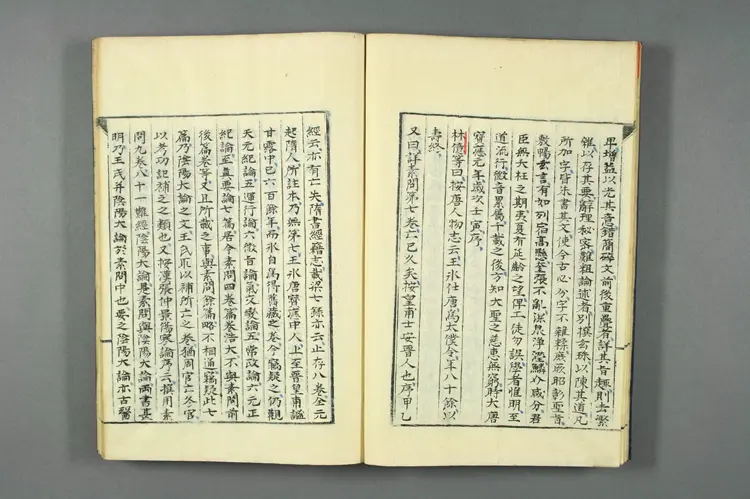 卑增益以光其意錯簡碎文前後重疊者詳其旨趣削去繁
雜以存其要辭理秘密難粗論述者別撰玄珠以陳其道凡
所加字皆朱書其文使今古必分字不雜糅庶厥昭彰聖旨
敷暢玄言有如列宿高懸奎張不亂深泉淨瀅鱗介咸分君
臣無夭枉之期夷夏有延齡之望俾工徒勿誤學者惟明至
道流行徽音累屬千載之後方知大聖之慈惠無窮時大唐
寶應元年歲次壬寅序
林億等曰按唐人物志云王冰仕唐爲太僕令年八十餘以
壽終
又曰詳素問第七卷亡已久矣按皇甫士安晉人也序甲乙
經云亦有亡失隋書經籍志載梁七錄亦云止存八卷全元
起隋人所註本乃無第七王冰唐寶應中人上至晉皇甫謐
甘露中已六百餘年而冰自爲得舊藏之卷今竊疑之仍觀
天元紀論五運行論六微旨論氣交變論五常政論六元正
紀論至真要論七篇居今素問四卷篇卷浩大不與素問前
後篇卷等又且所載之事與素問餘篇略不相通竊疑此七
篇乃陰陽大論之文王氏取以補所亡之卷猶周官亡冬官
以考功記補之之類也又按漢張仲景傷寒論序云撰用素
問九卷八十一難經陰陽大論是素問與陰陽大論兩書甚
明乃王氏并陰陽大論於素問中也要之陰陽大論亦古醫